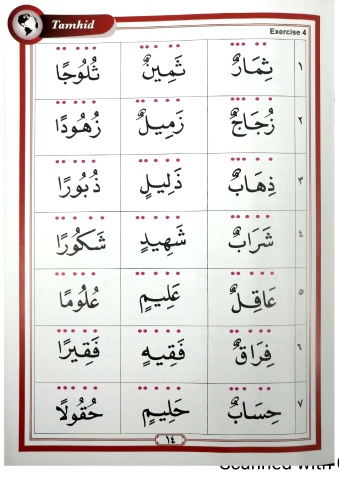 Tamhid
Exercise 4
١ ثِمَارٌ ثَمِينٌ ثُلُوجًا
٢ زُجَاجٌ زَمِيلٌ زُهُودًا
٣ ذِهَابٌ ذَلِيلٍ ذُبُورًا
٤ شَرَابٌ شَهِيدٍ شَكُورًا
٥ عَاقِلٌ عَلِيمٍ عُلُومًا
٦ فِرَاقٌ فَقِيهٍ فَقِيرًا
٧ حِسَابٌ حَلِيمٍ حُقُولًا
١٤
Scanned with